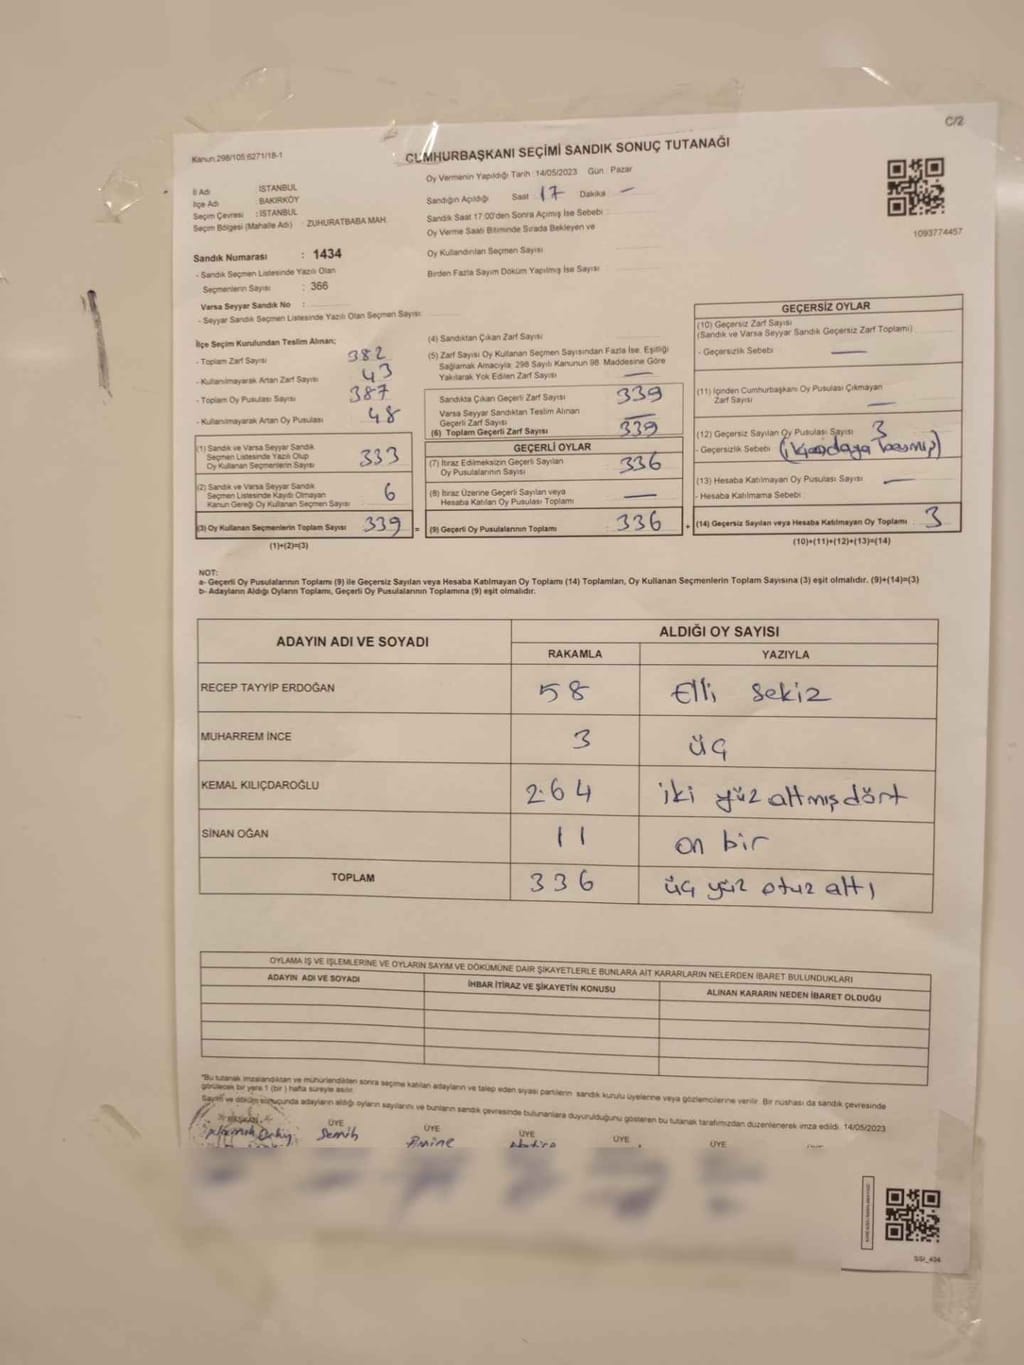 C/2
Kanun:298/105;6271/18-1
CUMHURBAŞKANI SEÇİMİ SANDIK SONUÇ TUTANAĞI
İl Adı İSTANBUL
İlçe Adı BAKIRKÖY
Seçim Çevresi : İSTANBUL
Seçim Bölgesi (Mahalle Adı) : ZUHURATBABA MAH.
Oy Vermenin Yapıldığı Tarih :14/05/2023 Gün : Pazar
Sandığın Açıldığı Saat 17 Dakika —
Sandık Saat 17:00'den Sonra Açılmış İse Sebebi
Oy Verme Saati Bitiminde Sırada Bekleyen ve
Oy Kullandırılan Seçmen Sayısı
Birden Fazla Sayım Döküm Yapılmış İse Sayısı
1093774457
Sandık Numarası : 1434
- Sandık Seçmen Listesinde Yazılı Olan
Seçmenlerin Sayısı : 366
Varsa Seyyar Sandık No :
- Seyyar Sandık Seçmen Listesinde Yazılı Olan Seçmen Sayısı:
İlçe Seçim Kurulundan Teslim Alınan;
- Toplam Zarf Sayısı 382
- Kullanılmayarak Artan Zarf Sayısı 43
- Toplam Oy Pusulası Sayısı 387
- Kullanılmayarak Artan Oy Pusulası 48
(1) Sandık ve Varsa Seyyar Sandık
Seçmen Listesinde Yazılı Olup
Oy Kullanan Seçmenlerin Sayısı 333
(2) Sandık ve Varsa Seyyar Sandık
Seçmen Listesinde Kaydı Olmayan
Kanun Gereği Oy Kullanan Seçmen Sayısı 6
(3) Oy Kullanan Seçmenlerin Toplam Sayısı 339
(1)+(2)=(3)
(4) Sandıktan Çıkan Zarf Sayısı
(5) Zarf Sayısı Oy Kullanan Seçmen Sayısından Fazla İse, Eşitliği
Sağlamak Amacıyla; 298 Sayılı Kanunun 98. Maddesine Göre
Yakılarak Yok Edilen Zarf Sayısı —
Sandıkta Çıkan Geçerli Zarf Sayısı 339
Varsa Seyyar Sandıktan Teslim Alınan
Geçerli Zarf Sayısı —
(6) Toplam Geçerli Zarf Sayısı 339
GEÇERLİ OYLAR
(7) İtiraz Edilmeksizin Geçerli Sayılan
Oy Pusulasının Sayısı 336
(8) İtiraz Üzerine Geçerli Sayılan veya
Hesaba Katılan Oy Pusulası Toplamı —
= (9) Geçerli Oy Pusulalarının Toplamı 336
GEÇERSİZ OYLAR
(10) Geçersiz Zarf Sayısı
(Sandık ve Varsa Seyyar Sandık Geçersiz Zarf Toplamı)
- Geçersizlik Sebebi —
(11) İçinden Cumhurbaşkanı Oy Pusulası Çıkmayan
Zarf Sayısı —
(12) Geçersiz Sayılan Oy Pusulası Sayısı 3
- Geçersizlik Sebebi
(13) Hesaba Katılmayan Oy Pusulası Sayısı —
- Hesaba Katılmama Sebebi
+ (14) Geçersiz Sayılan veya Hesaba Katılmayan Oy Toplamı 3
(10)+(11)+(12)+(13)=(14)
NOT:
a- Geçerli Oy Pusulalarının Toplamı (9) ile Geçersiz Sayılan veya Hesaba Katılmayan Oy Toplamı (14) Toplamları, Oy Kullanan Seçmenlerin Toplam Sayısına (3) eşit olmalıdır. (9)+(14)=(3)
b- Adayların Aldığı Oyların Toplamı, Geçerli Oy Pusulalarının Toplamına (9) eşit olmalıdır.
ADAYIN ADI VE SOYADI ALDIĞI OY SAYISI
RAKAMLA YAZIYLA
RECEP TAYYİP ERDOĞAN 58 Elli sekiz
MUHARREM İNCE 3 üç
KEMAL KILIÇDAROĞLU 264 iki yüz altmışdört
SİNAN OĞAN 11 on bir
TOPLAM 336 üç yüz otuz altı
OYLAMA İŞ VE İŞLEMLERİNE VE OYLARIN SAYIM VE DÖKÜMÜNE DAİR ŞİKAYETLERLE BUNLARA AİT KARARLARIN NELERDEN İBARET BULUNDUKLARI
ADAYIN ADI VE SOYADI İHBAR İTİRAZ VE ŞİKAYETİN KONUSU ALINAN KARARIN NEDEN İBARET OLDUĞU
*Bu tutanak imzalandıktan ve mühürlendikten sonra seçime katılan adayların ve talep eden siyasi partilerin sandık kurulu üyelerine veya gözlemcilerine verilir. Bir nüshası da sandık çevresinde
görülecek bir yere 1 (bir) hafta süreyle asılır.
Sayım ve döküm sonucunda adayların aldığı oyların sayılarını ve bunların sandık çevresinde bulunanlara duyurulduğunu gösteren bu tutanak tarafımızdan düzenlenerek imza edildi. 14/05/2023
BAŞKAN ÜYE ÜYE ÜYE ÜYE ÜYE
Semih Emine
SSI_434